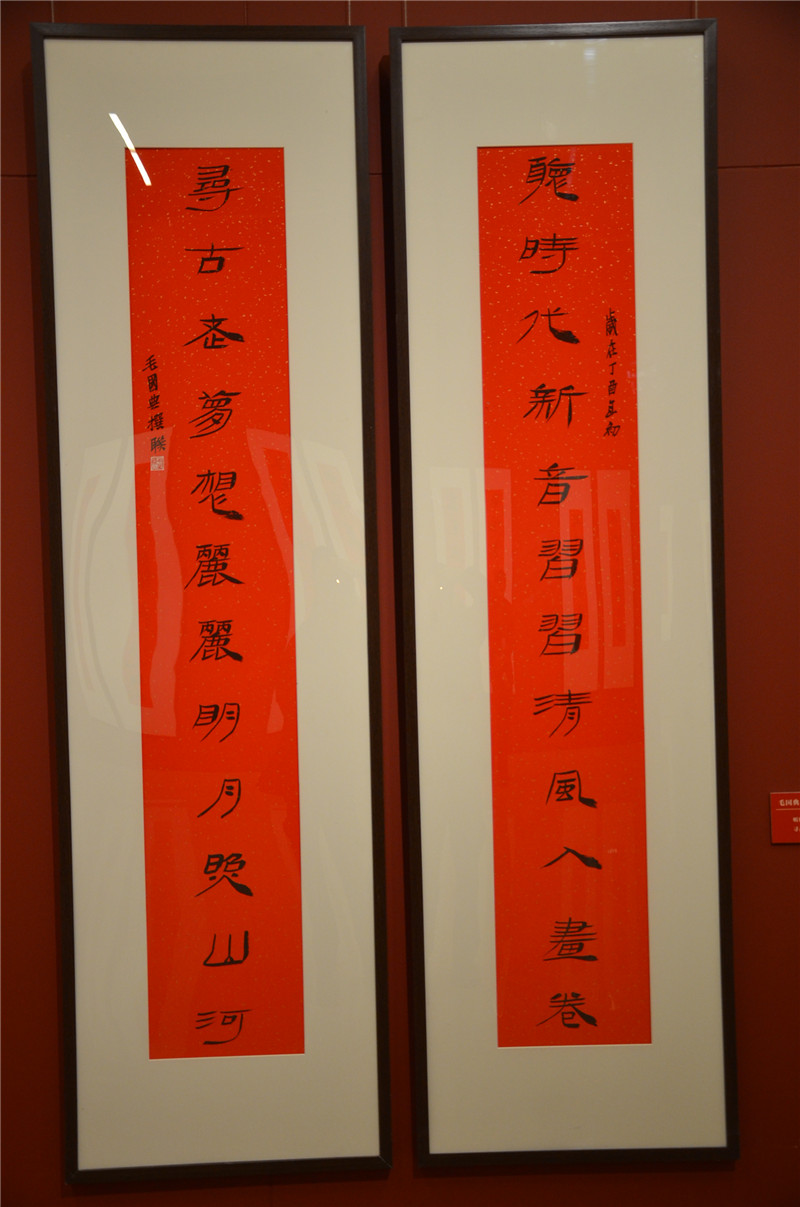 聽時代新音習習清風入畫卷
歲在丁酉年初
尋古老夢想麗麗明月照山河
毛國典撰聯
毛国典